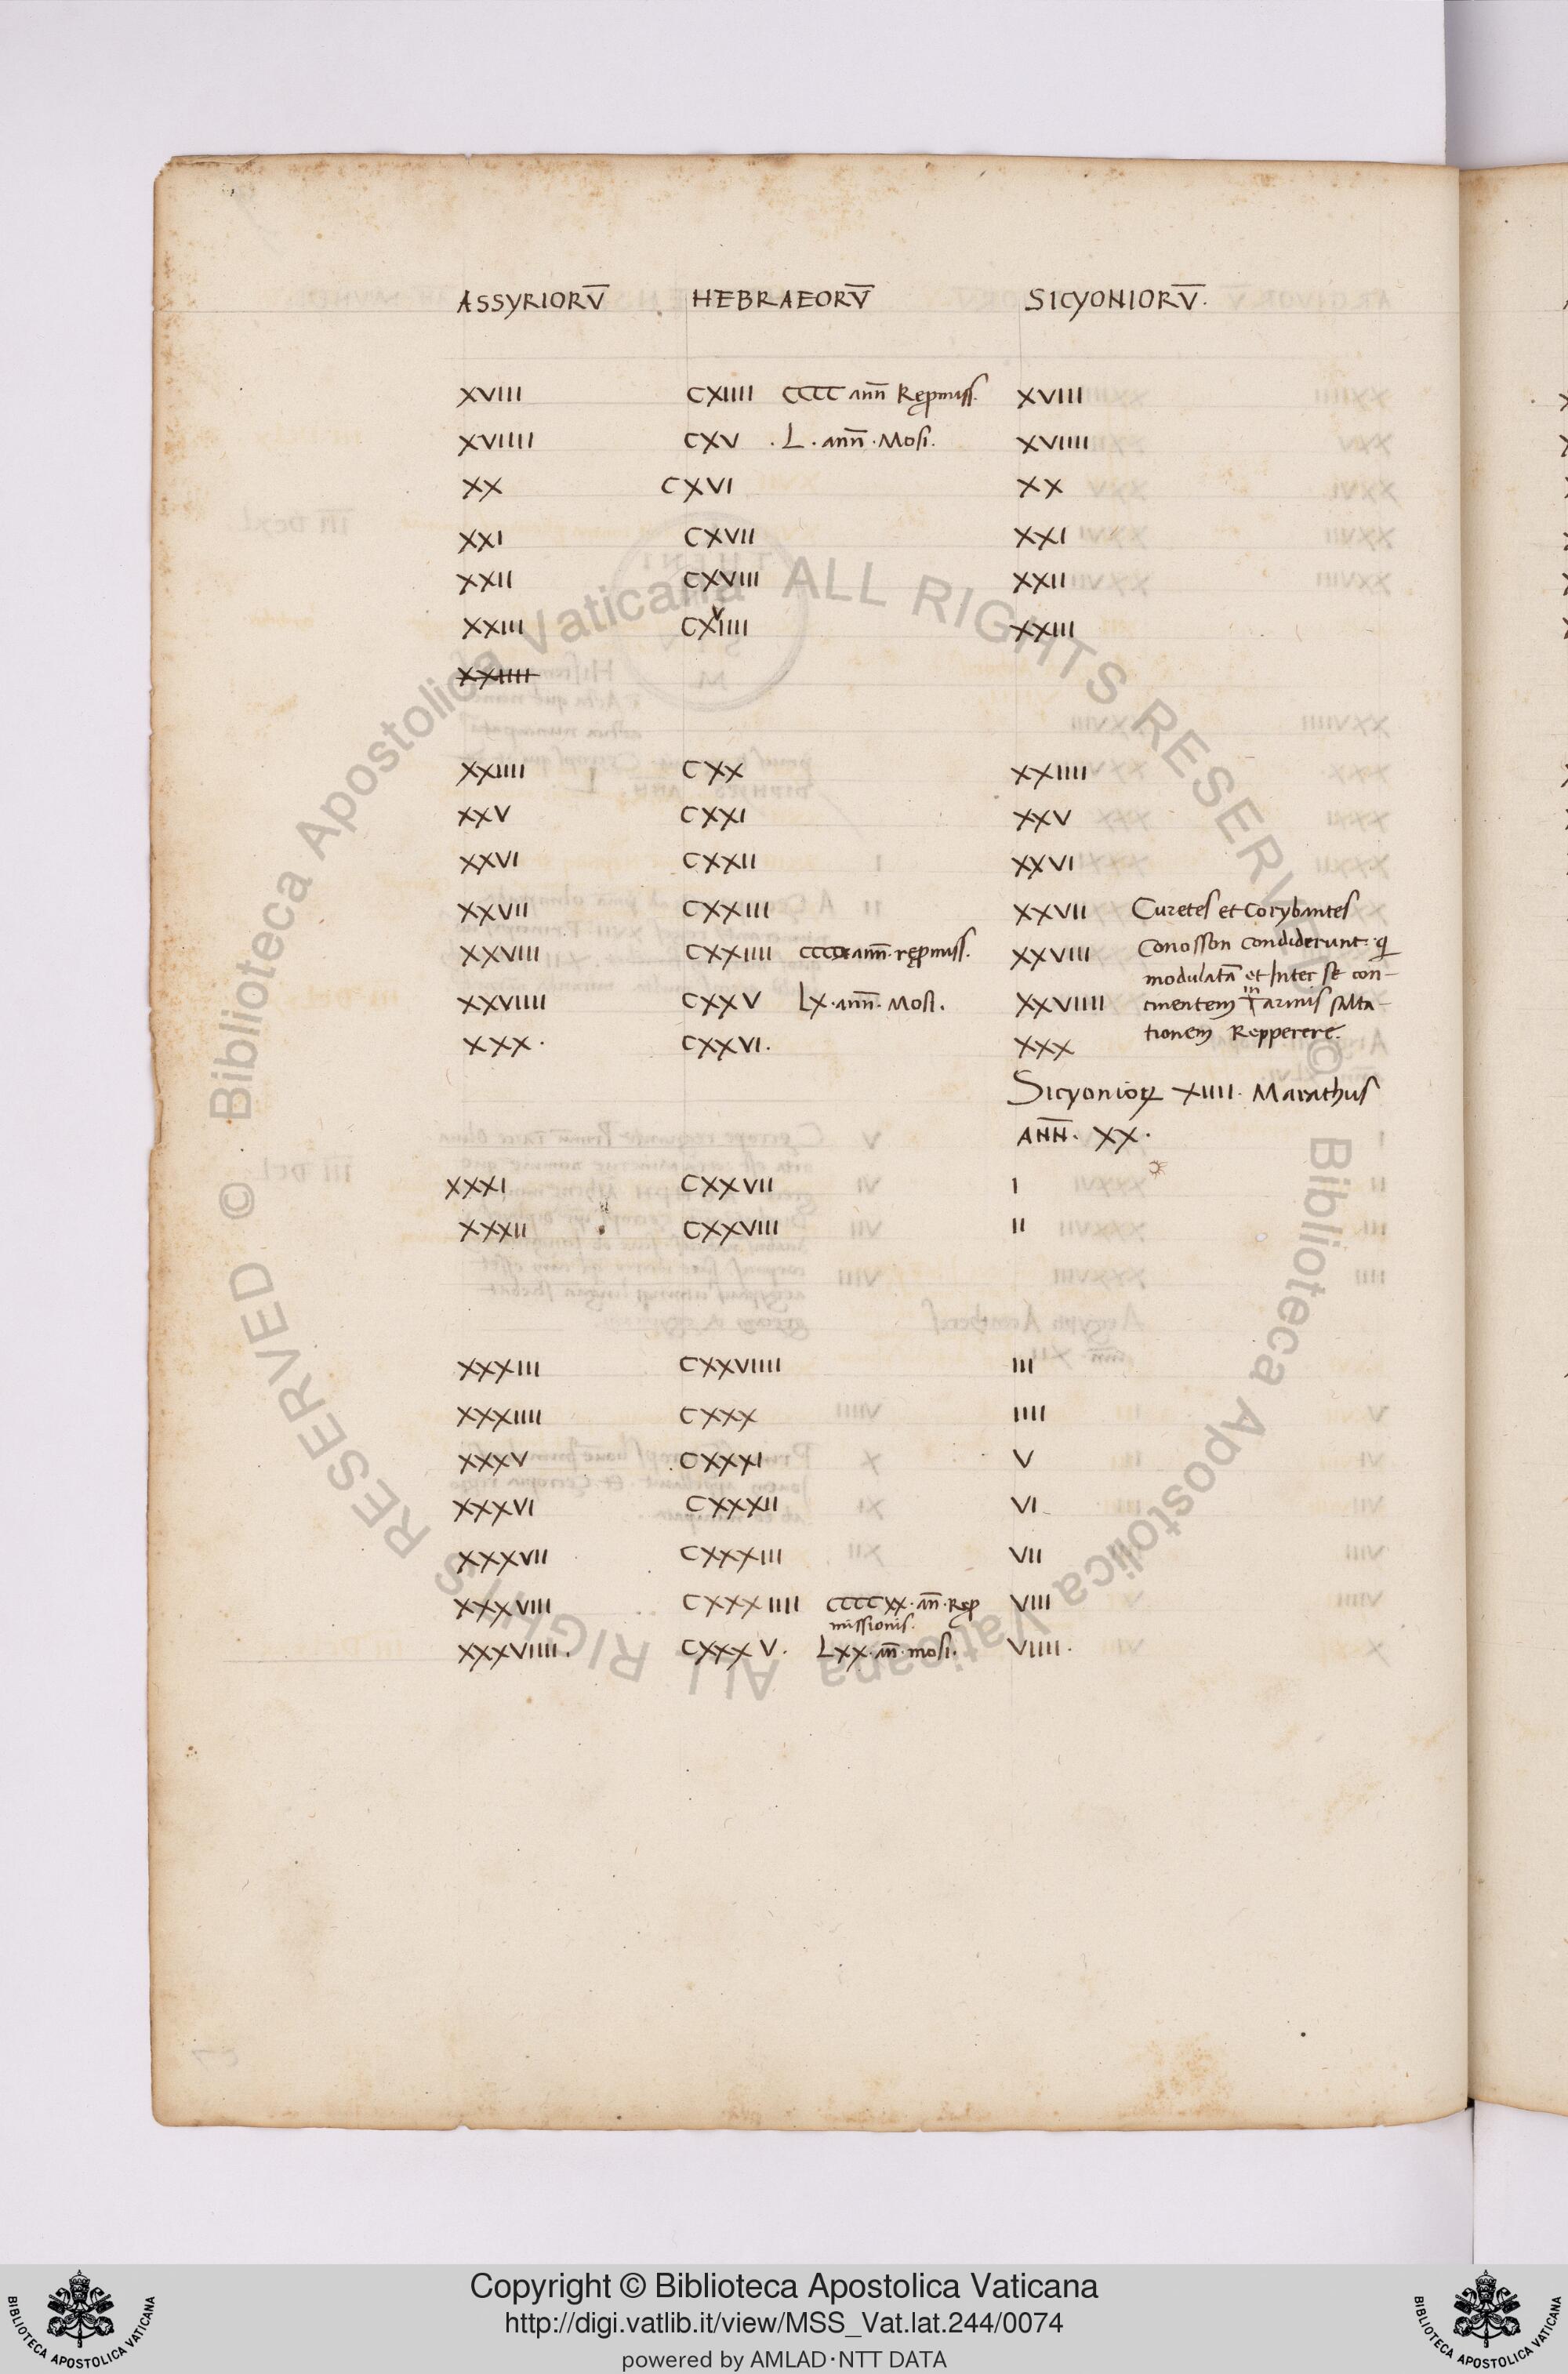 ASSYRIORV̄ HEBRAEORV̄ SICYONIORV̄.
XVIII CXIIII CCCC ann̄ Rep̱miss. XVIII
XVIIII CXV . L . ann̄ . Mosi. XVIIII
XX CXVI XX
XXI CXVII XXI
XXII CXVIII XXII
XXIII CXVIIII XXIII
XXIIII
XXIIII CXX XXIIII
XXV CXXI XXV
XXVI CXXII XXVI
XXVII CXXIII XXVII Curetes et Corybantes
XXVIII CXXIIII ann̄. rep̱miss. XXVIII Conosson condiderunt. q
modulatā et Inter se con-
XXVIIII CXXV LX. ann̄. Mosi. XXVIIII cinentem in armis salta-
tionem Repperere.
XXX. CXXVI. XXX
Sicynioꝝ XIIII. Marathus
ANN̄. XX.
XXXI CXXVII I
XXXII CXXVIII II
XXXIII CXXVIIII III
XXXIIII CXXX IIII
XXXV CXXXI V
XXXVI CXXXII VI
XXXVII CXXXIII VII
XXXVIII CXXXIIII CCCCXX. an̄. Rep̱ VIII
missionis.
XXXVIIII. CXXXV. LXX. an̄. mosi. VIIII.
© Biblioteca Apostolica Vaticana ALL RIGHTS RESERVED
© Biblioteca Apostolica Vaticana ALL RIGHTS RESERVED
Copyright © Biblioteca Apostolica Vaticana
http://digi.vatlib.it/view/MSS_Vat.lat.244/0074
powered by AMLAD·NTT DATA
BIBLIOTECA APOSTOLICA VATICANA
BIBLIOTECA APOSTOLICA VATICANA